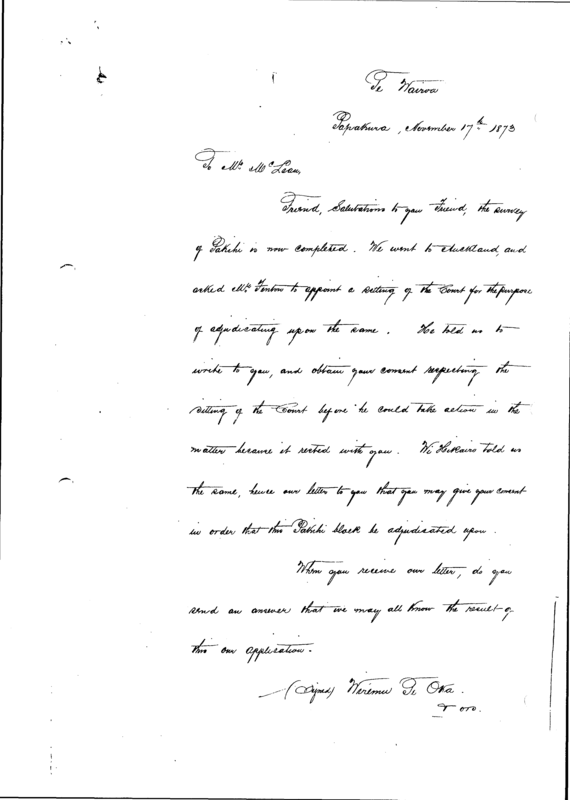 Te Wairoa
Papakura, November 17th 1873
To Mr. McLean,
Friend, Salutations to you Friend, the survey
of Pakihi is now completed. We went to Auckland, and
asked Mr. Fenton to appoint a sitting of the Court for the purpose
of adjudicating upon the same. He told us to
write to you, and obtain your consent respecting the
sitting of the Court before he could take action in the
matter because it rested with you. Wi Hikairo told us
the same, hence our letter to you that you may give your consent
in order that this Pakihi block be adjudicated upon.
When you receive our letter, do you
send an answer that we may all know the result of
this our application.
(Signed) Wiremu Te Oka.
& ors.